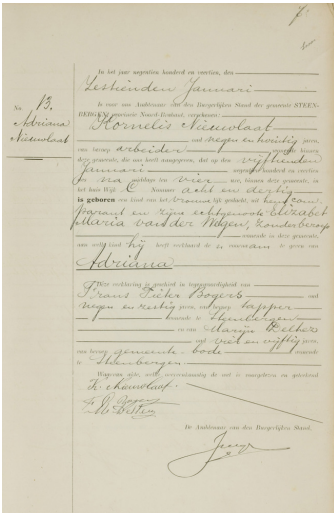 No. 13.
Adriana
Nieuwlaat
In het jaar negentien honderd en veertien, den
Zestienden Januari
is voor ons Ambtenaar van den Burgerlijken Stand der gemeente STEEN-
BERGEN, provincie Noord-Brabant, verschenen:
Kornelis Nieuwlaat
oud negen en twintig jaren,
van beroep arbeider wonende binnen
deze gemeente, die ons heeft aangegeven, dat op den vijftienden
Januari negentien honderd en veertien
des na middags ten vier ure, binnen deze gemeente, in
het huis Wijk C Nummer acht en dertig
is geboren een kind van het vrouwelijk geslacht, uit hem com-
parant en zijne echtgenoote Elizabet
Maria van der Wegen, zonder beroep
wonende in deze gemeente,
aan welk kind hij heeft verklaard de voornaam te geven van
Adriana
Deze verklaring is geschied in tegenwoordigheid van
Frans Pieter Bogers oud
negen en zestig jaren, van beroep tapper
wonende te Steenbergen
en van Marijn
oud vier en vijftig jaren,
van beroep gemeente-bode wonende
te Steenbergen
Waarvan akte, welke overeenkomstig de wet is voorgelezen en geteekend
K. Nieuwlaat.
De Ambtenaar van den Burgerlijken Stand